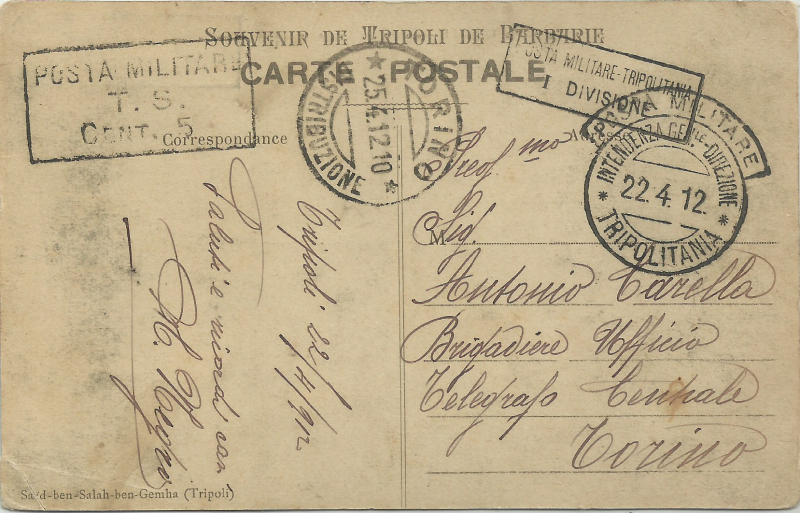 SOUVENIR DE TRIPOLI DE BARBARIE
CARTE POSTALE
POSTA MILITARE
T. S.
CENT. 5
TORINO
25.4.12.10
DISTRIBUZIONE
POSTA MILITARE-TRIPOLITANIA
I DIVISIONE
POSTA MILITARE
INTENDENZA GENle-DIREZIONE
22.4.12
TRIPOLITANIA
Correspondance
Adresse
Saluti e ricordi cari
Tripoli 22/4/912
Preg.mo
M
Sig.
Antonio Carella
Brigadiere Ufficio
Telegrafo Centrale
Torino
Sa'd-ben-Salah-ben-Gemha (Tripoli)